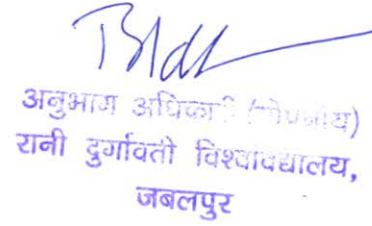 अनुभाग अधिकारी (गोपनीय)
रानी दुर्गावती विश्वविद्यालय,
जबलपुर